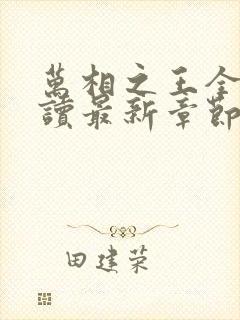 萬相之王全
讀最新章節
田建荣